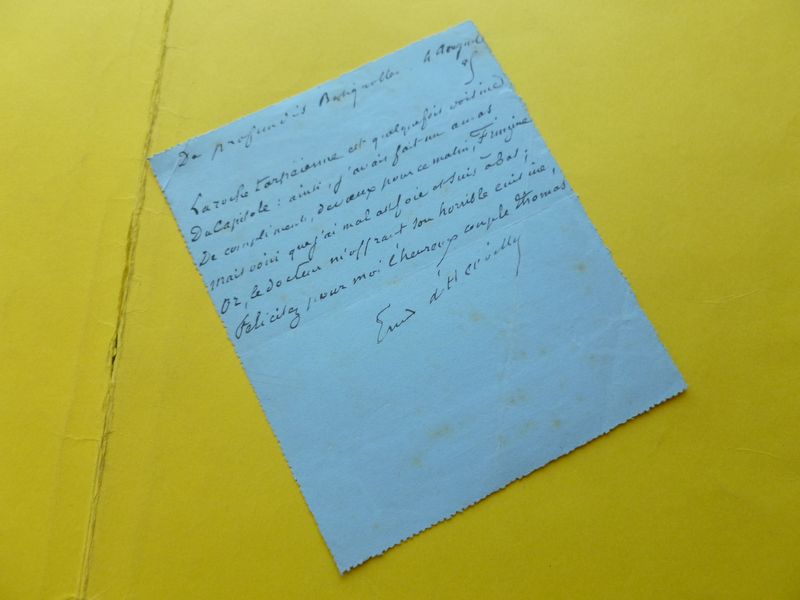 De profundis Batignolles. 4 
La roche tarpéienne est quelquefois voisine
Du Capitole : ainsi, j'avais fait un amas
De compliments, de vœux pour ce matin,
Mais voici que j'ai mal au foie et suis à bas ;
Or, le docteur m'offrant son horrible cuisine,
Félicitez pour moi l'heureux couple Thomas
d'Hervilly